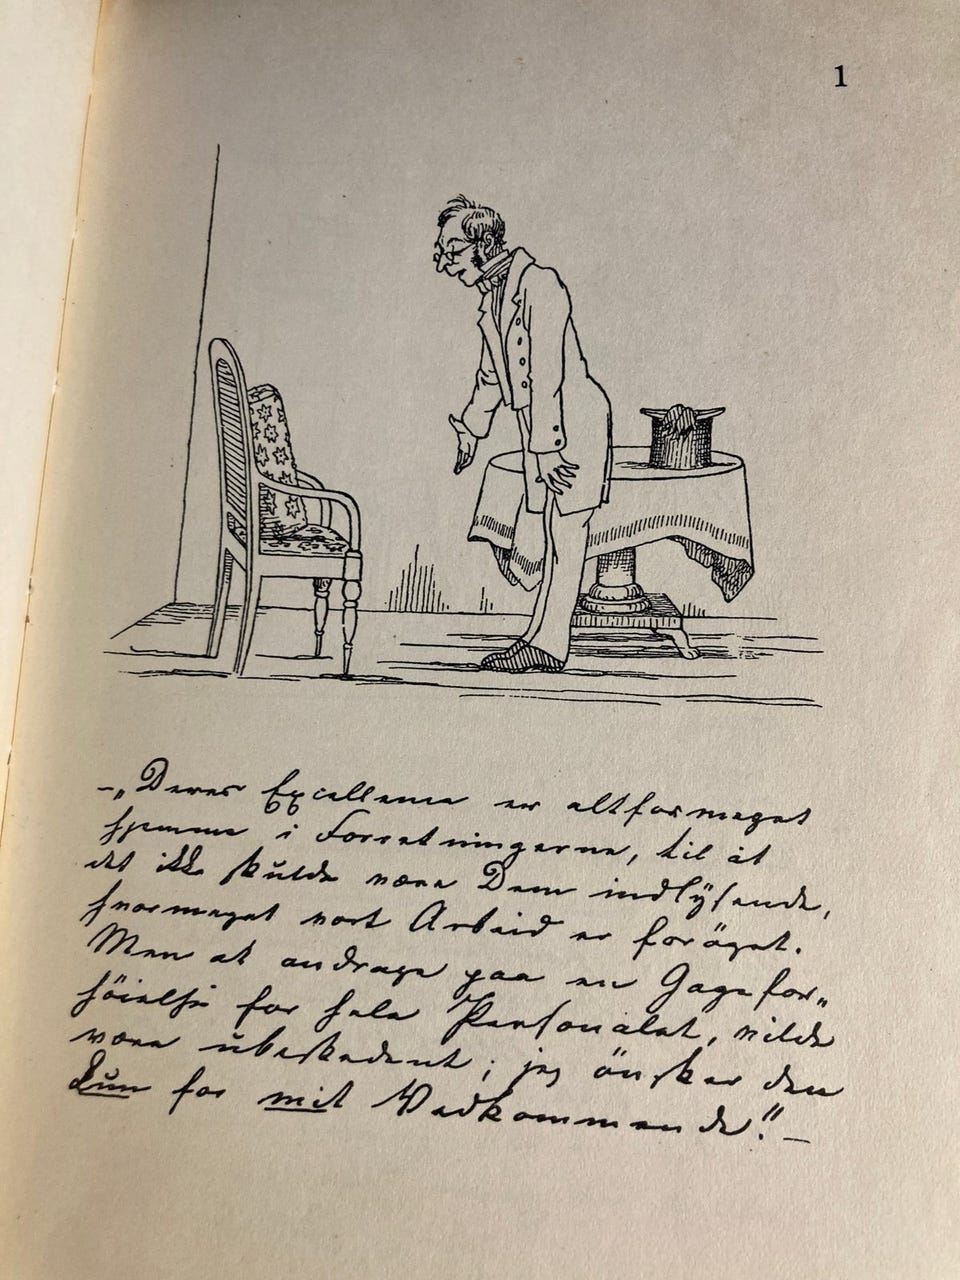 1
–„Deres Excellence er altformeget
hjemme i Forretningerne, til at
det ikke skulde være Dem indlysende,
hvormeget vort Arbeid er forøget.
Men at andrage paa en Gagefor„
höielse for hele Personalet, vilde
være ubeskedent; jeg önsker den
kun for mit Vedkommende.” –